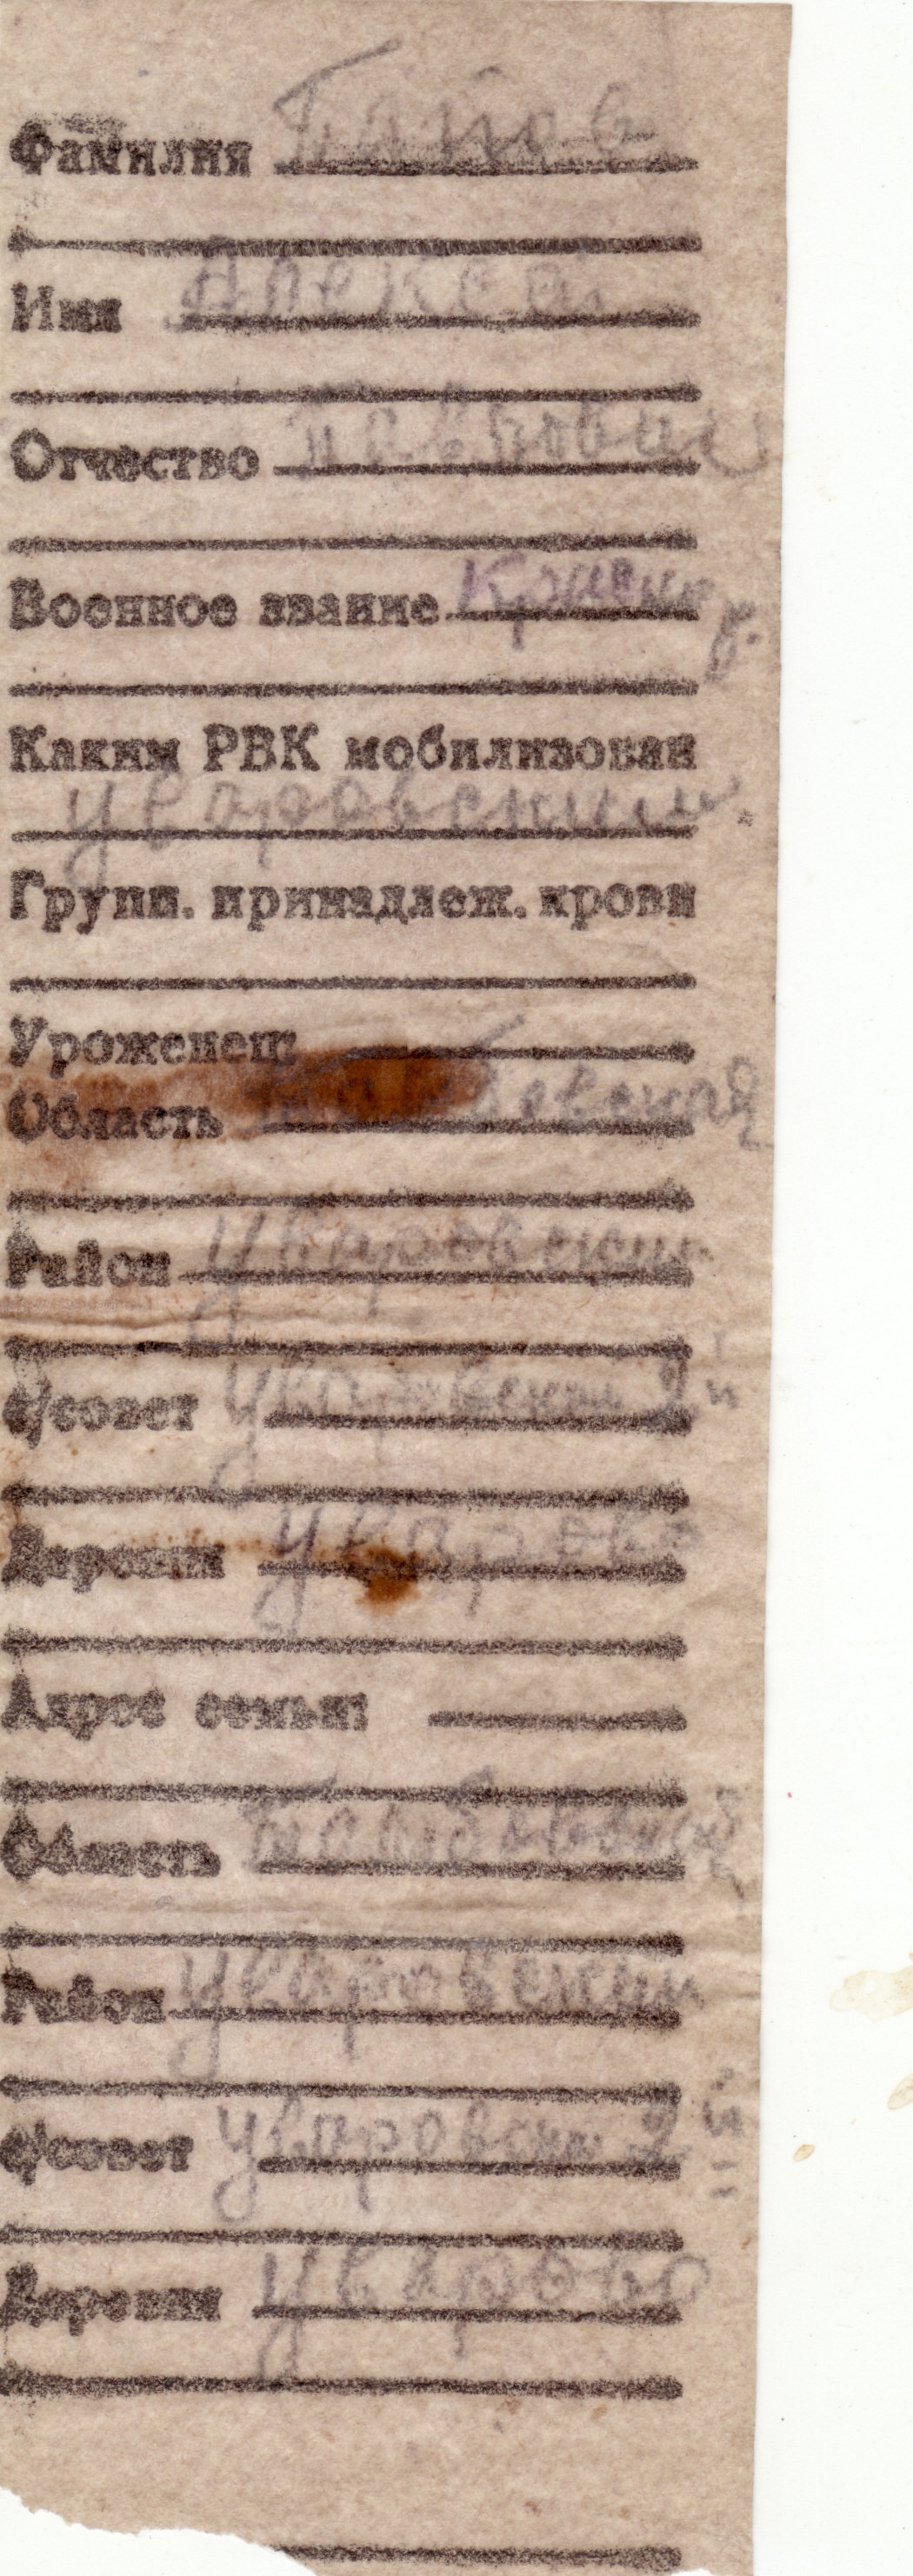 Фамилия
Имя Алексей
Отчество
Военное звание Красноар
Каким РВК мобилизован
Уваровским
Групп. принадлеж. крови
Уроженец:
Область Тамбовской
Район Уваровский
с/совет Уваровский 2й
Деревня Уварово
Адрес семьи:
Область Тамбовской
Район Уваровский
с/совет Уваровский 2й
Деревня Уварово